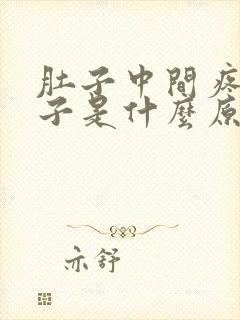 肚子中間疼
子是什麼原
亦舒